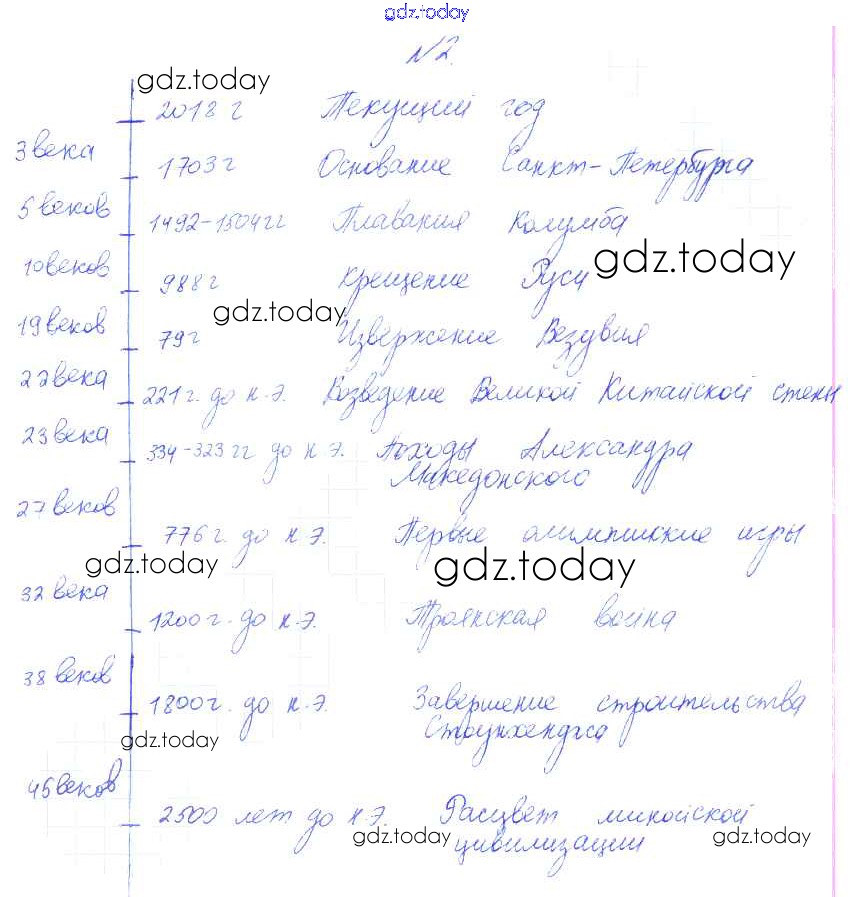 gdz.today
№2.
gdz.today
2018 г Текущий год
3 века
1703 г Основание Санкт-Петербурга
5 веков
1492-1504 гг Плавания Колумба
gdz.today
10 веков
988 г Крещение Руси
gdz.today
19 веков
79 г Извержение Везувия
22 века
221 г. до н.э. Возведение Великой Китайской стены
23 века
334-323 гг до н.э. Походы Александра
Македонского
27 веков
776 г. до н.э. Первые олимпийские игры
gdz.today gdz.today
32 века
1200 г. до н.э. Троянская война
38 веков
1800 г. до н.э. Завершение строительства
Стоунхенджа
gdz.today
45 веков
2500 лет до н.э. Расцвет минойской
gdz.today цивилизации gdz.today